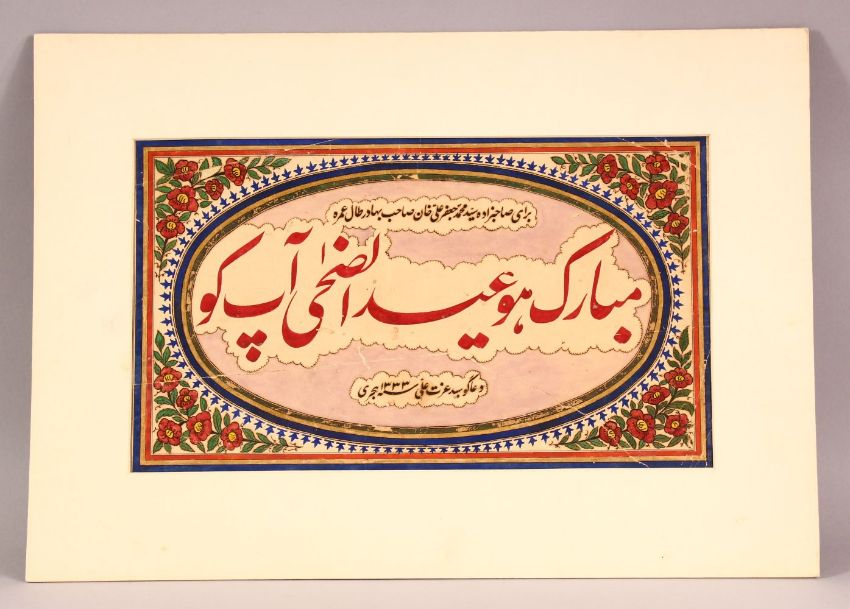 برای صاحبزاده سید محمد جعفر علی خان صاحب بهادر طال عمره
مبارک ہو عید الضحٰی آپ کو
دعاگو سید عزت علی سنہ ۱۳۳۳ ہجری